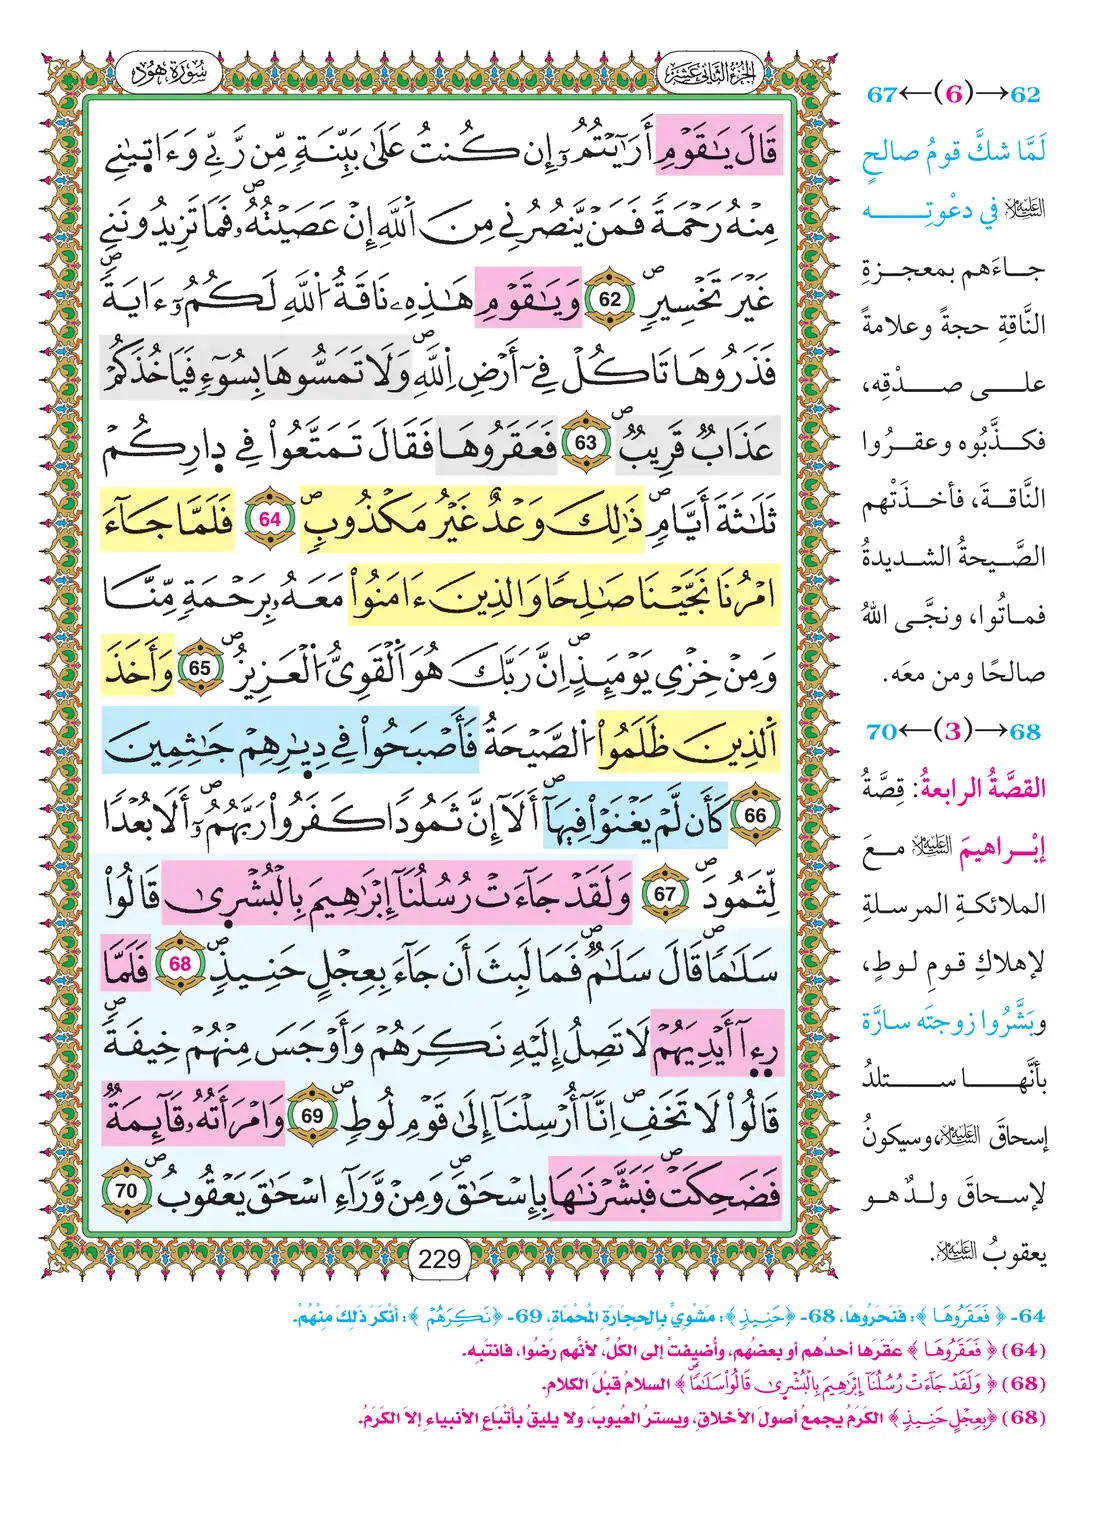 الجزء الثاني عشر
سورة هود
قَالَ يَٰقَوْمِ أَرَٰٓيْتُمُۥٓ إِن كُنتُ عَلَىٰ بَيِّنَةٍ مِّن رَّبِّي وَءَاتِيٰنِي
مِنْهُ رَحْمَةً فَمَنْ يَّنصُرُنِي مِنَ اَ۬للَّهِ إِنْ عَصَيْتُهُۥ فَمَا تَزِيدُونَنِي
غَيْرَ تَخْسِيرٍ 62 وَيَٰقَوْمِ هَٰذِهِۦ نَاقَةُ اُ۬للَّهِ لَكُمُۥٓ ءَايَةً
فَذَرُوهَا تَاكُلْ فِيٓ أَرْضِ اِ۬للَّهِ وَلَا تَمَسُّوهَا بِسُوٓءٍ فَيَاخُذَكُمْ
عَذَابٌ قَرِيبٌ 63 فَعَقَرُوهَا فَقَالَ تَمَتَّعُواْ فِي دِارِكُمْ
ثَلَٰثَةَ أَيَّامٍ ذَٰلِكَ وَعْدٌ غَيْرُ مَكْذُوبٍ 64 فَلَمَّا جَآءَ
امْرُنَا نَجَّيْنَا صَٰلِحًا وَالذِينَ ءَامَنُواْ مَعَهُۥ بِرَحْمَةٍ مِّنَّا
وَمِنْ خِزْيِ يَوْمَئِذٍ اِنَّ رَبَّكَ هُوَ اَ۬لْقَوِيُّ اُ۬لْعَزِيزُ 65 وَأَخَذَ
اَ۬لذِينَ ظَلَمُواْ اُ۬لصَّيْحَةُ فَأَصْبَحُواْ فِي دِيٰرِهِمْ جَٰثِمِينَ
66 كَأَن لَّمْ يَغْنَوْاْ فِيهَآ أَلَآ إِنَّ ثَمُودًا كَفَرُواْ رَبَّهُمُۥٓ أَلَا بُعْدًا
لِّثَمُودَ 67 وَلَقَدْ جَآءَتْ رُسُلُنَآ إِبْرَٰهِيمَ بِالْبُشْر۪يٰ قَالُواْ
سَلَٰمًا قَالَ سَلَٰمٌ فَمَا لَبِثَ أَن جَآءَ بِعِجْلٍ حَنِيذٍ 68 فَلَمَّا
رِءٰٓا أَيْدِيَهُمْ لَا تَصِلُ إِلَيْهِ نَكِرَهُمْ وَأَوْجَسَ مِنْهُمْ خِيفَةً
قَالُواْ لَا تَخَفِ اِنَّآ أُرْسِلْنَآ إِلَىٰ قَوْمِ لُوطٍ 69 وَامْرَأَتُهُۥ قَآئِمَةٌ
فَضَحِكَتْ فَبَشَّرْنَٰهَا بِإِسْحَٰقَ وَمِنْ وَّرَآءِ اسْحَٰقَ يَعْقُوبُ 70
229
62→(6)←67
لَمَّا شكَّ قومُ صالحٍ
عليه السلام في دعْوتِـه
جاءَهم بمعجزةِ
النَّاقةِ حجةً وعلامةً
على صدْقِه،
فكذَّبُوه وعقرُوا
النَّاقةَ، فأخذَتْهم
الصَّيحةُ الشديدةُ
فماتُوا، ونجَّى اللهُ
صالحًا ومن معَه.
68→(3)←70
القصَّةُ الرابعةُ: قِصَّةُ
إبْراهيمَ عليه السلام معَ
الملائكةِ المرسلةِ
لإهلاكِ قومِ لوطٍ،
وبَشَّرُوا زوجتَه سارَّة
بأنَّها ستلدُ
إسحاقَ عليه السلام، وسيكونُ
لإسحاقَ ولدٌ هو
يعقوبُ عليه السلام.
64- ﴿فَعَقَرُوهَا﴾: فَنَحَرُوهَا، 68- ﴿حَنِيذٍ﴾: مَشْوِيٍّ بِالحِجَارَةِ المُحْمَاةِ، 69- ﴿نَكِرَهُمْ﴾: أَنْكَرَ ذَلِكَ مِنْهُمْ.
(64) ﴿فَعَقَرُوهَا﴾ عقَرَها أحدُهم أو بعضُهم، وأُضيفتْ إلى الكُلِّ، لأنَّهم رضُوا، فانتَبِه.
(68) ﴿وَلَقَدْ جَآءَتْ رُسُلُنَآ إِبْرَٰهِيمَ بِالْبُشْر۪يٰ قَالُواْ سَلَٰمًا﴾ السلامُ قبْلَ الكلامِ.
(68) ﴿بِعِجْلٍ حَنِيذٍ﴾ الكَرَمُ يجمعُ أصولَ الأخلاقِ، ويسترُ العُيوبَ، ولا يليقُ بأتْبَاعِ الأنبياءِ إلا الكَرَمُ.